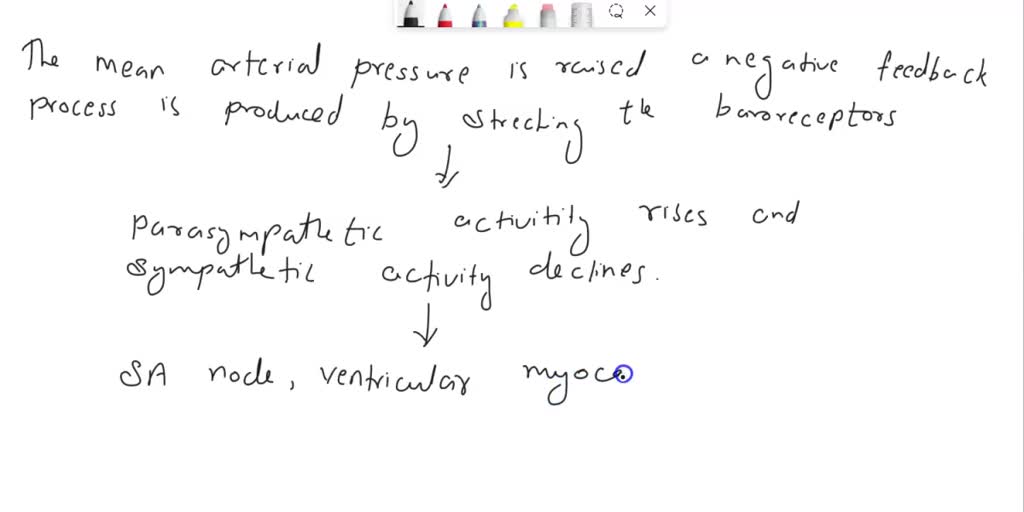 The mean arterial pressure is raised a negative feedback
process is produced by streching the baroreceptors
parasympathetic activitity rises and
sympathetic activity declines.
SA node, ventricular myoca